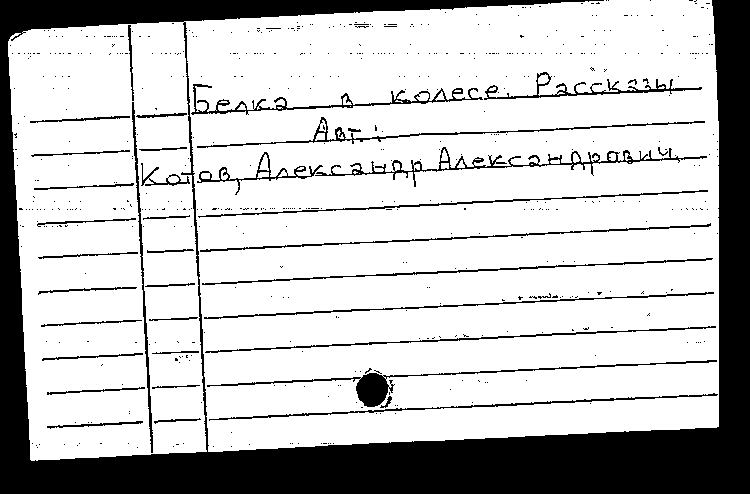 Белка в колесе. Рассказы
Авт.:
Котов, Александр Александрович.